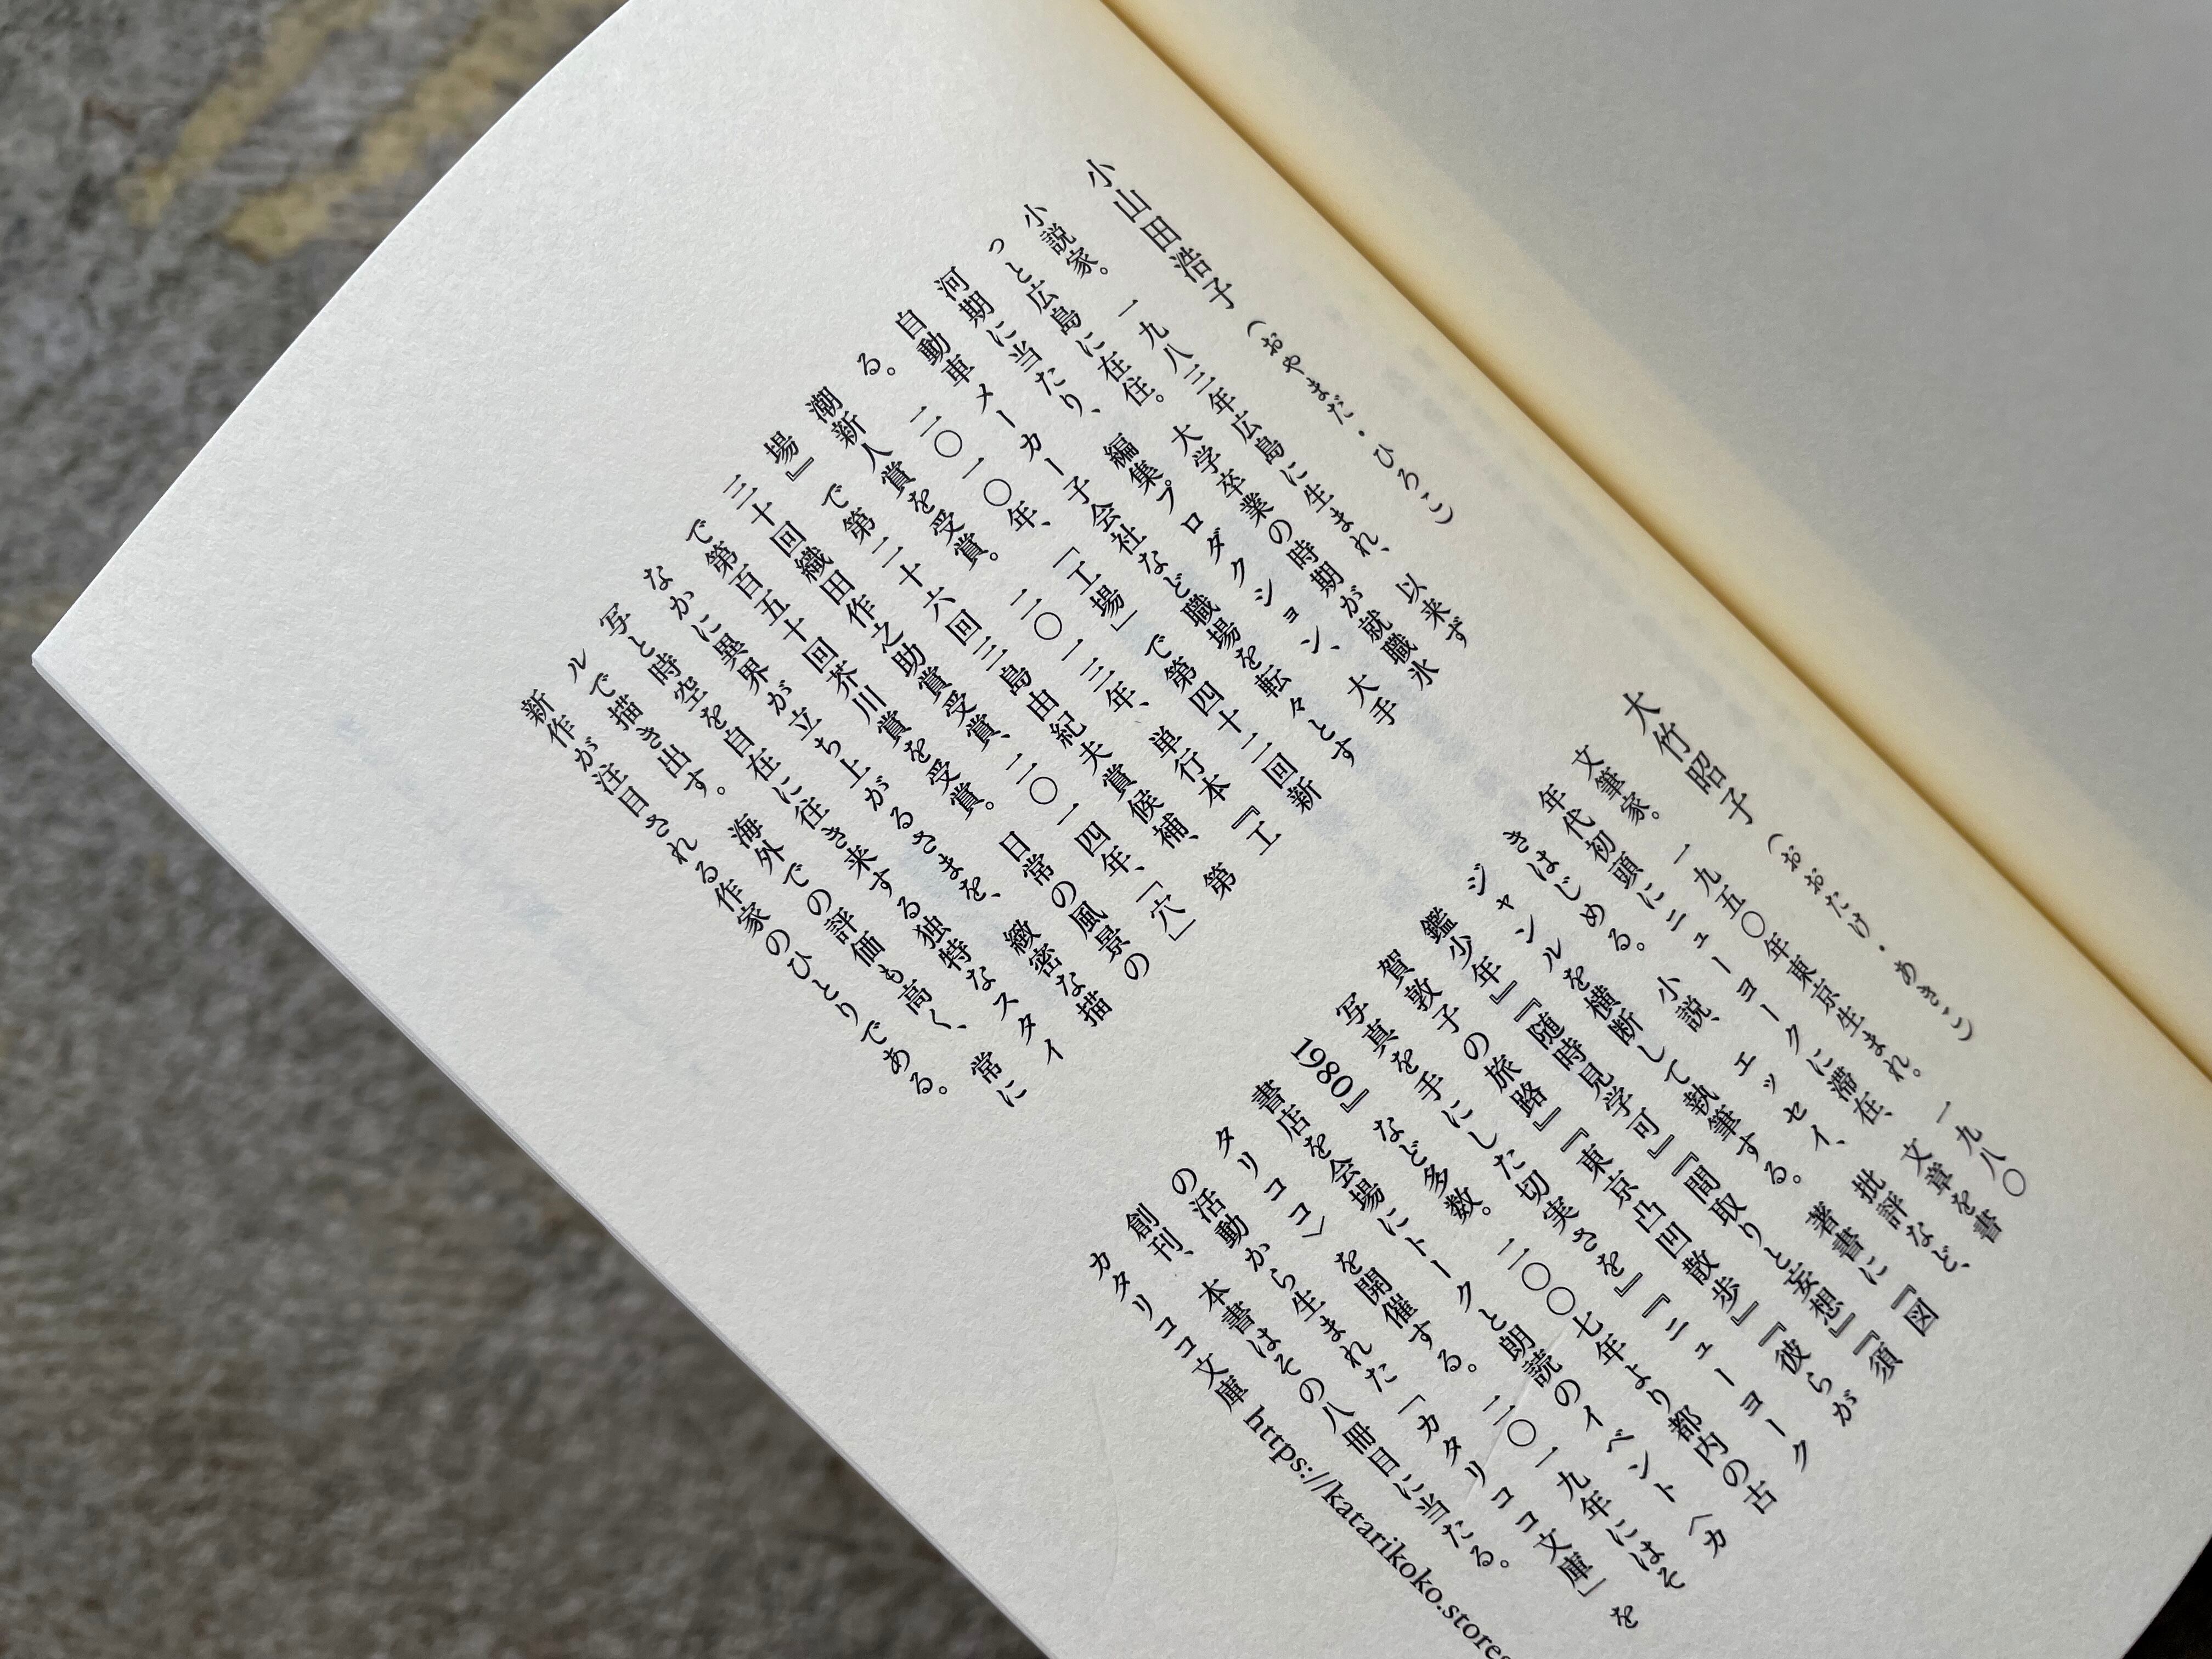 小山田浩子(おやまだ・ひろこ)
小説家。一九八三年広島に生まれ、以来ず
っと広島に在住。大学卒業の時期が就職氷
河期に当たり、編集プロダクション、大手
自動車メーカー子会社など職場を転々とす
る。二〇一〇年、「工場」で第四十二回新
潮新人賞を受賞。二〇一三年、単行本『工
場』で第二十六回三島由紀夫賞候補、第
三十回織田作之助賞受賞、二〇一四年、「穴」
で第百五十回芥川賞を受賞。日常の風景の
なかに異界が立ち上がるさまを、緻密な描
写と時空を自在に往き来する独特なスタイ
ルで描き出す。海外での評価も高く、常に
新作が注目される作家のひとりである。
大竹昭子(おおたけ・あきこ)
文筆家。一九五〇年東京生まれ。一九八〇
年代初頭にニューヨークに滞在、文章を書
きはじめる。小説、エッセイ、批評など、
ジャンルを横断して執筆する。著書に『図
鑑少年』『随時見学可』『間取りと妄想』『須
賀敦子の旅路』『東京凸凹散歩』『彼らが
写真を手にした切実さを』『ニューヨーク
1980』など多数。二〇〇七年より都内の古
書店を会場にトークと朗読のイベント〈カ
タリココ〉を開催する。二〇一九年にはそ
の活動から生まれた「カタリココ文庫」を
創刊、本書はその八冊目に当たる。
カタリココ文庫 https://katarikoko.stores